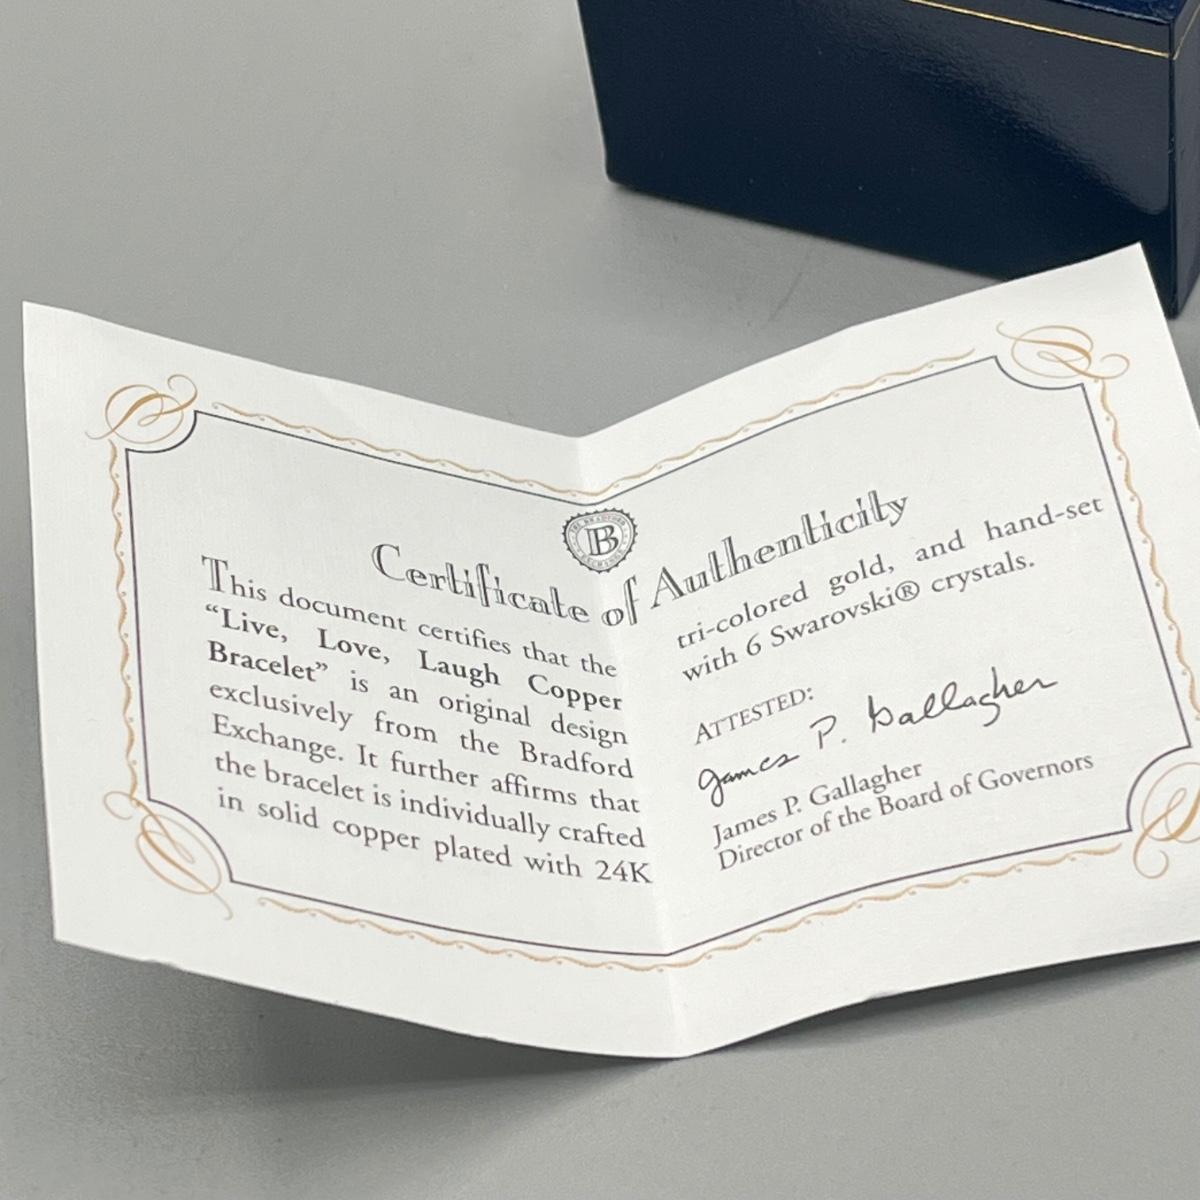 THE BRADFORD
B
EXCHANGE
Certificate of Authenticity
This document certifies that the
“Live, Love, Laugh Copper
Bracelet” is an original design
exclusively from the Bradford
Exchange. It further affirms that
the bracelet is individually crafted
in solid copper plated with 24K
tri-colored gold, and hand-set
with 6 Swarovski® crystals.
ATTESTED:
James P. Gallagher
James P. Gallagher
Director of the Board of Governors